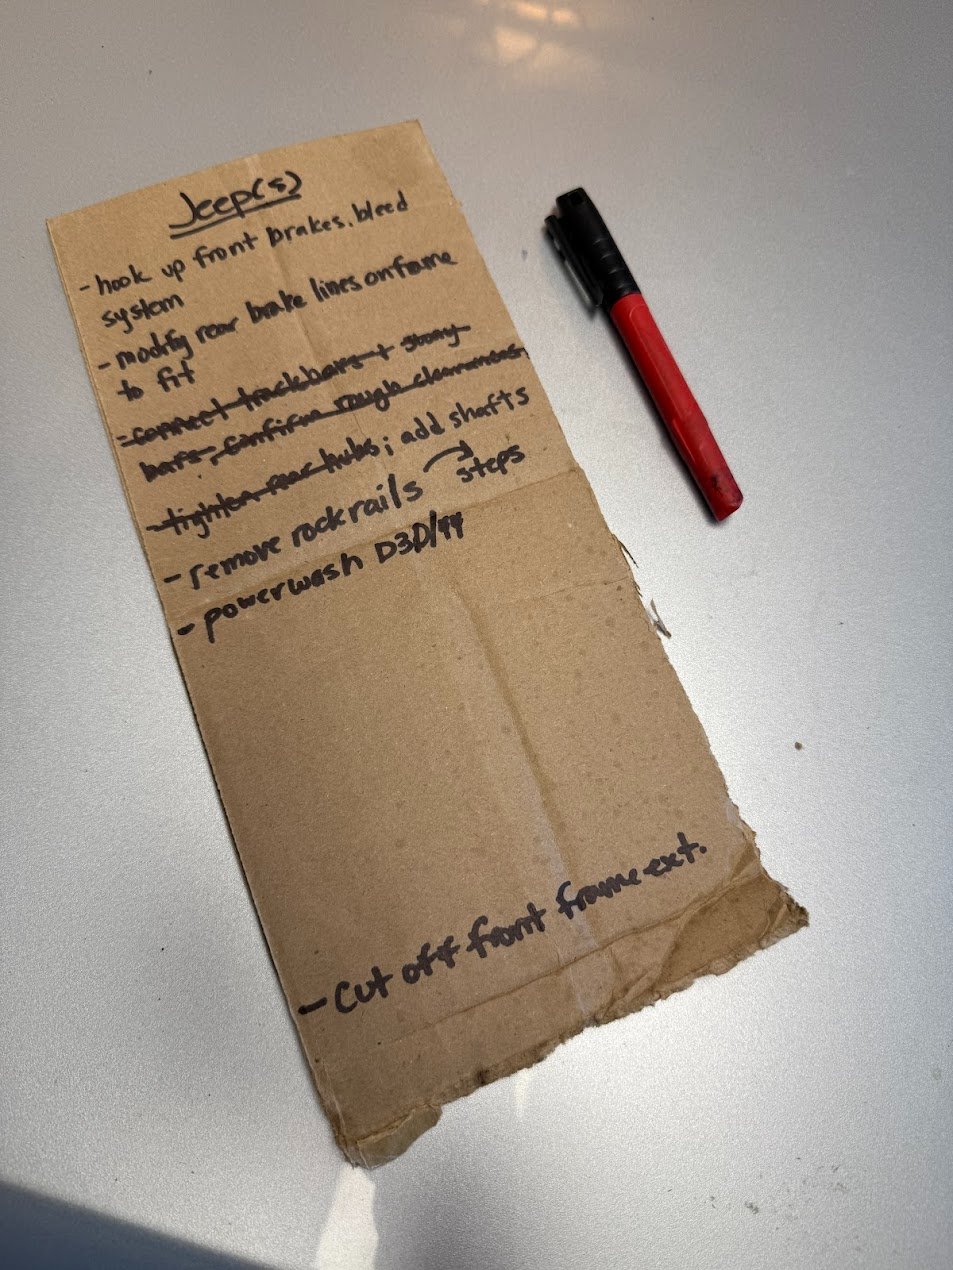 Jeep(s)
- hook up front brakes, bleed
system
- modify rear brake lines on frame
to fit
- connect trackbars + sway
bars; confirm rough clearances
- tighten rear hubs; add shafts
- remove rock rails steps
- powerwash D30/44
- cut off front frame ext.